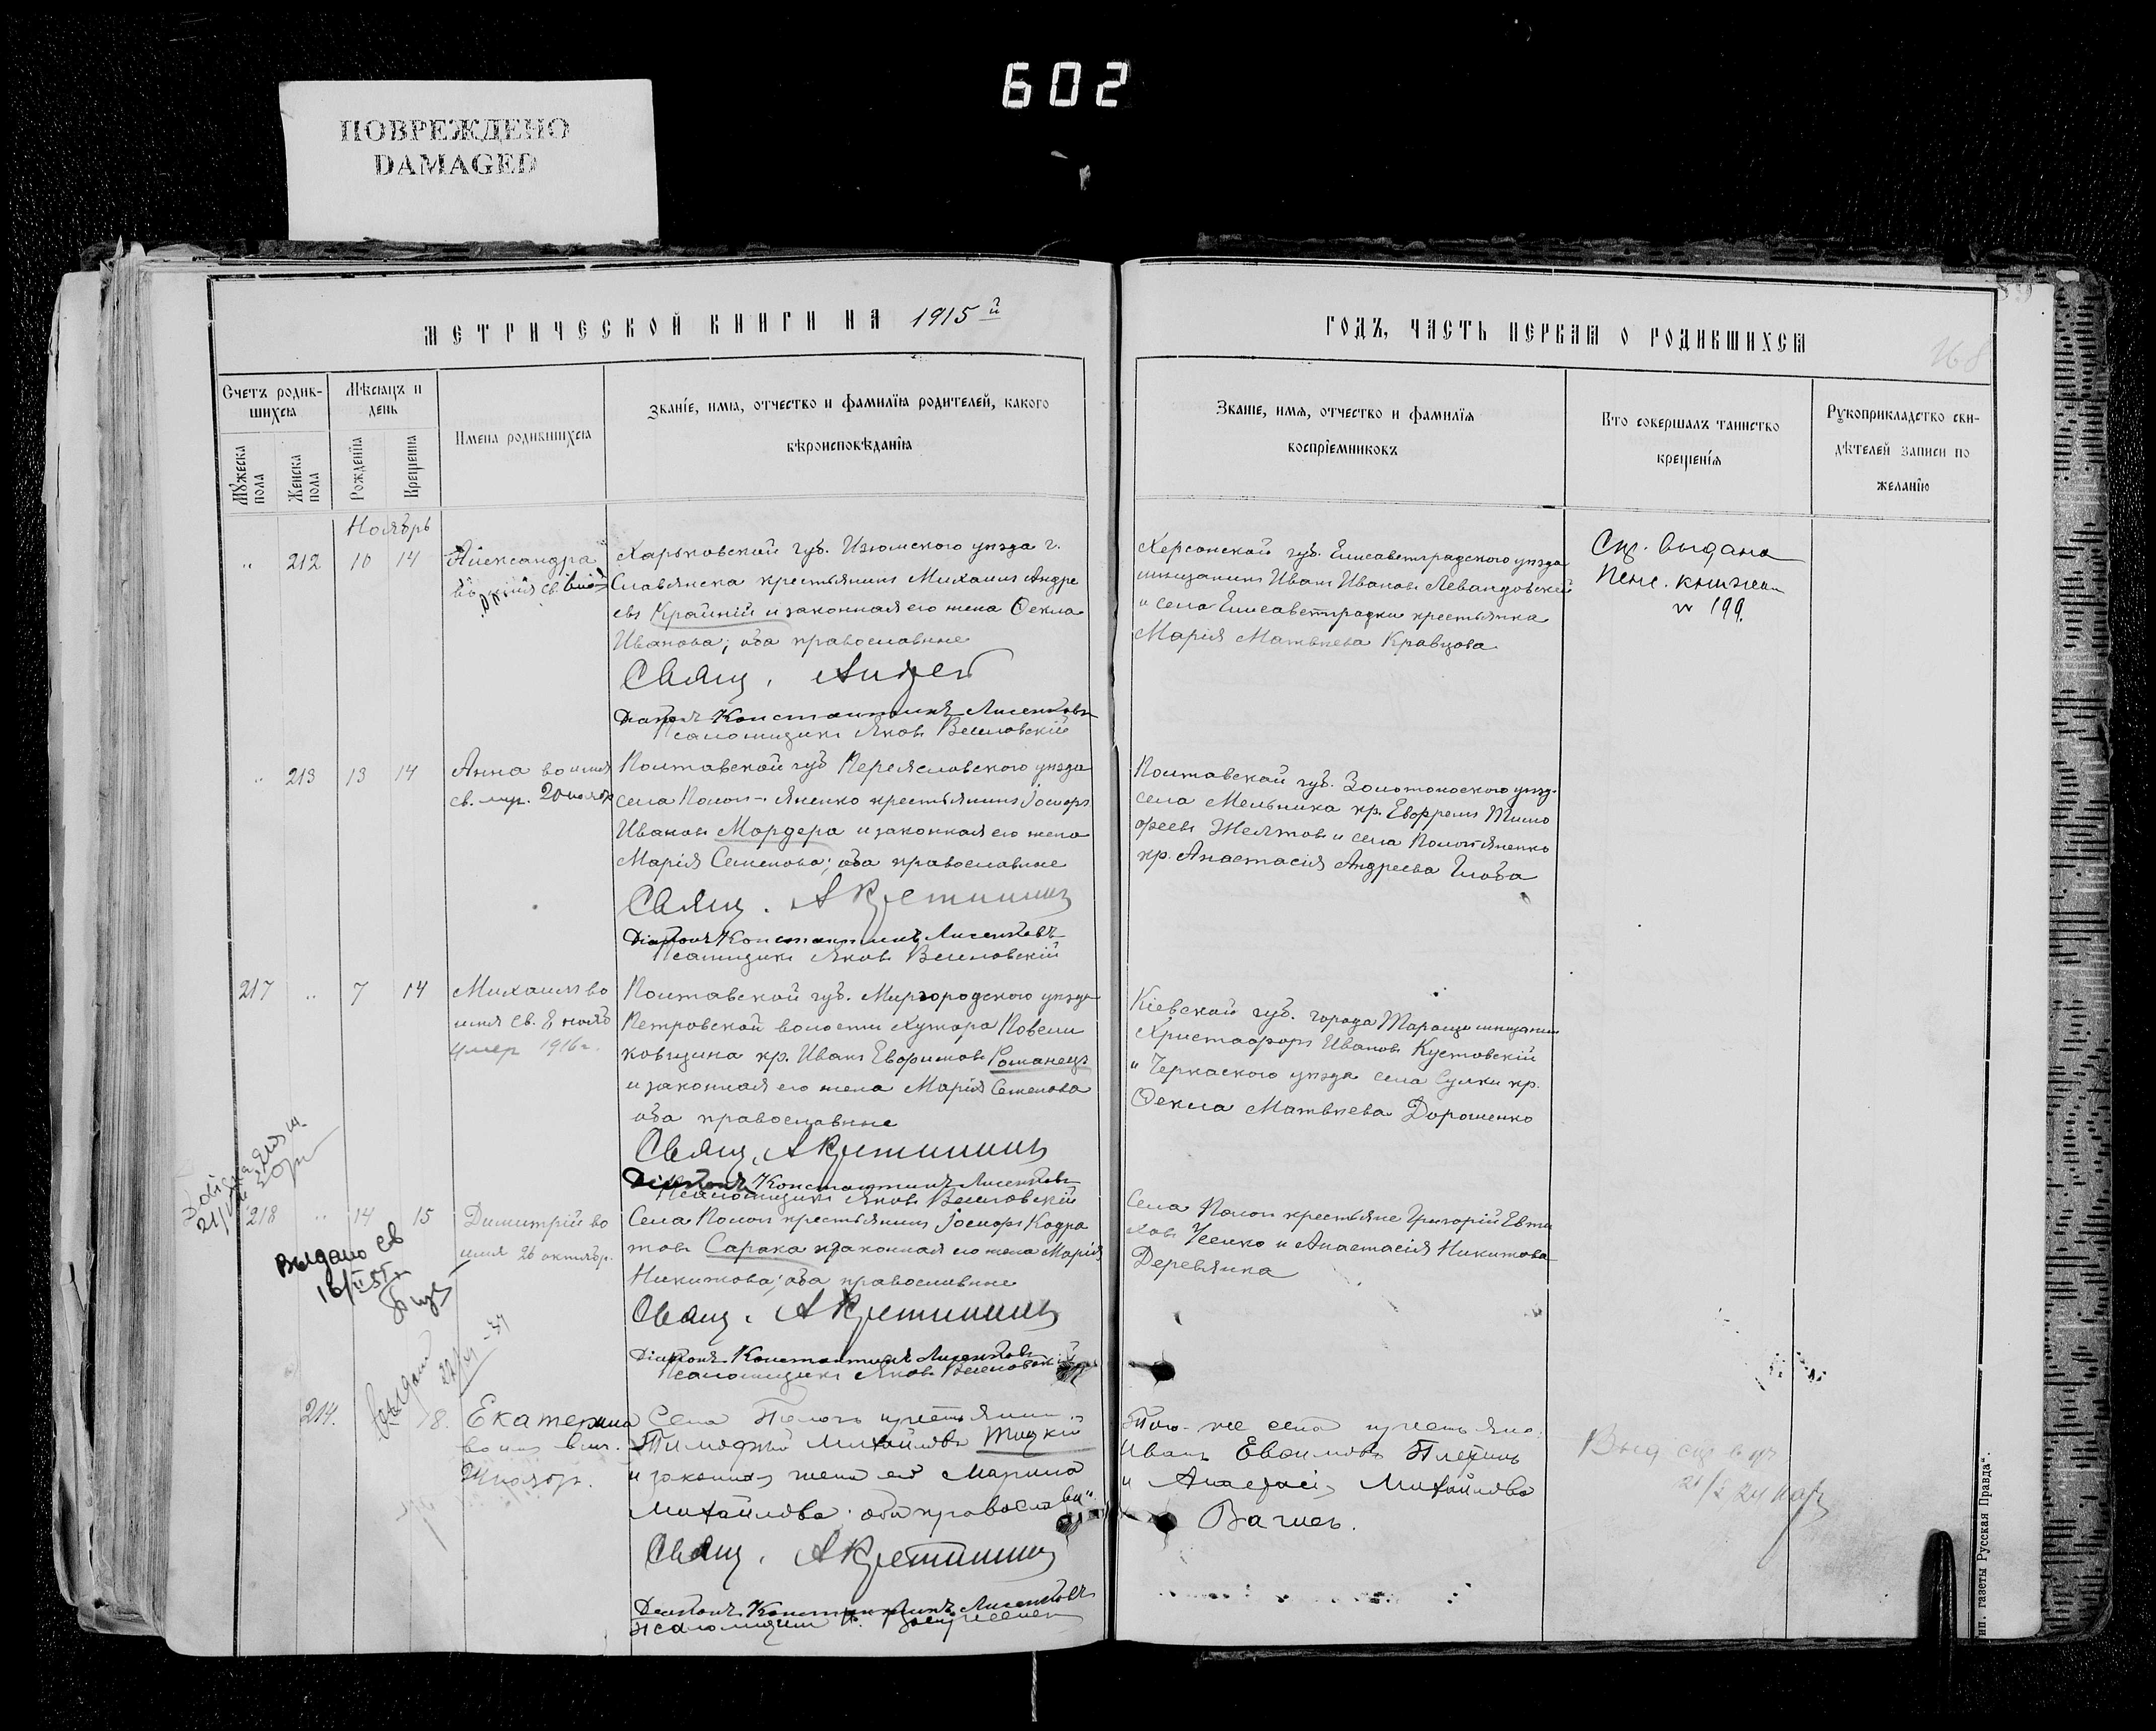 602
ПОВРЕЖДЕНО
DAMAGED
МЕТРИЧЕСКОЙ КНИГИ НА 1915й
ГОДЪ, ЧАСТЬ ПЕРВАЯ О РОДИВШИХСЯ
168
Счетъ родив-
шихся
Мѣсяцъ и
день
Имена родившихся
Званіе, имя, отчество и фамилія родителей, какого
вѣроисповѣданія
Мужеска
пола
Женска
пола
Рожденія
Крещенія
Званіе, имя, отчество и фамилія
воспріемниковъ
Кто совершалъ таинство
крещенія
Рукоприкладство сви-
дѣтелей записи по
желанію
Ноябрь
„ 212 10 14
Александра
Харьковской губ. Изюмского уѣзда г.
Славянска крестьянинъ Михаилъ Андре
евъ Крайній и законная его жена Ѳекла
Иванова; оба православные
Свящ. Андрей
Діаконъ Константинъ Лисенковъ
Псаломщикъ Яковъ Веселовскій
Херсонской губ. Елисаветградского уѣзда
мѣщанинъ Иванъ Ивановъ Левандовскій
и села Елисаветградки крестьянка
Марія Матвѣева Кравцова
Спр. выдана
Пенс. книжки
№ 199.
„ 213 13 14
Анна во имя
св. муч. 20 ноябр
Полтавской губ Переяславского уѣзда
села Полог-Яненко крестьянинъ
Ивановъ Мордера и законная его жена
Марія Семенова; оба православные
Свящ. А Кретининъ
Діаконъ Константинъ Лисенковъ
Псаломщикъ Яковъ Веселовскій
Полтавской губ. Золотоноского уѣзд.
села Мельника кр. Евфремъ Тимо
феевъ Желтов и села Полог Яненко
кр. Анастасія Андреева Глоба
217 „ 7 14
Михаилъ во
имя св. 8 нояб
умер 1916 г.
Полтавской губ. Миргородского уѣзда
Петровской волости хутора
ковщина кр. Иванъ Евфимовъ Романецъ
и законная его жена Марія Семенова
оба православные
Свящ. А Кретининъ
Діаконъ Константинъ Лисенковъ
Псаломщикъ Яковъ Веселовскій
Кіевской губ. города Таращи мѣщанинъ
Христофоръ Ивановъ Кустовскій
и Черкаского уѣзда села Сулки кр.
Ѳекла Матвѣева Дорошенко
218 „ 14 15
Димитрій во
имя 26 октябр.
Выдано св
Села Полог крестьянинъ
Сарака и законная его жена Марія
Никитова; оба православные
Свящ. А Кретининъ
Діаконъ Константинъ Лисенковъ
Псаломщикъ Яковъ Веселовскій
Села Полог крестьяне Григорій Евти
ховъ Усенко и Анастасія Никитова
Деревянка
214. 18.
Екатерина
24 ноябр.
Села Пологъ крестьянин
Тимофей Михайловъ
и законная жена его Марина
Михайлова оба православн
Свящ. А Кретининъ
Діаконъ Константинъ Лисенковъ
Того-же села крестьяне
Иванъ Евфимовъ
и Михайлова
Выд
ип. газеты Русская Правда“.